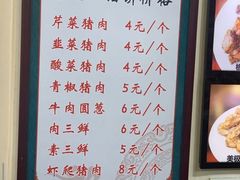 饼价格
芹菜猪肉 4元/个
韭菜猪肉 4元/个
酸菜猪肉 4元/个
青椒猪肉 5元/个
牛肉圆葱 6元/个
肉三鲜 6元/个
素三鲜 5元/个
虾爬猪肉 8元/个